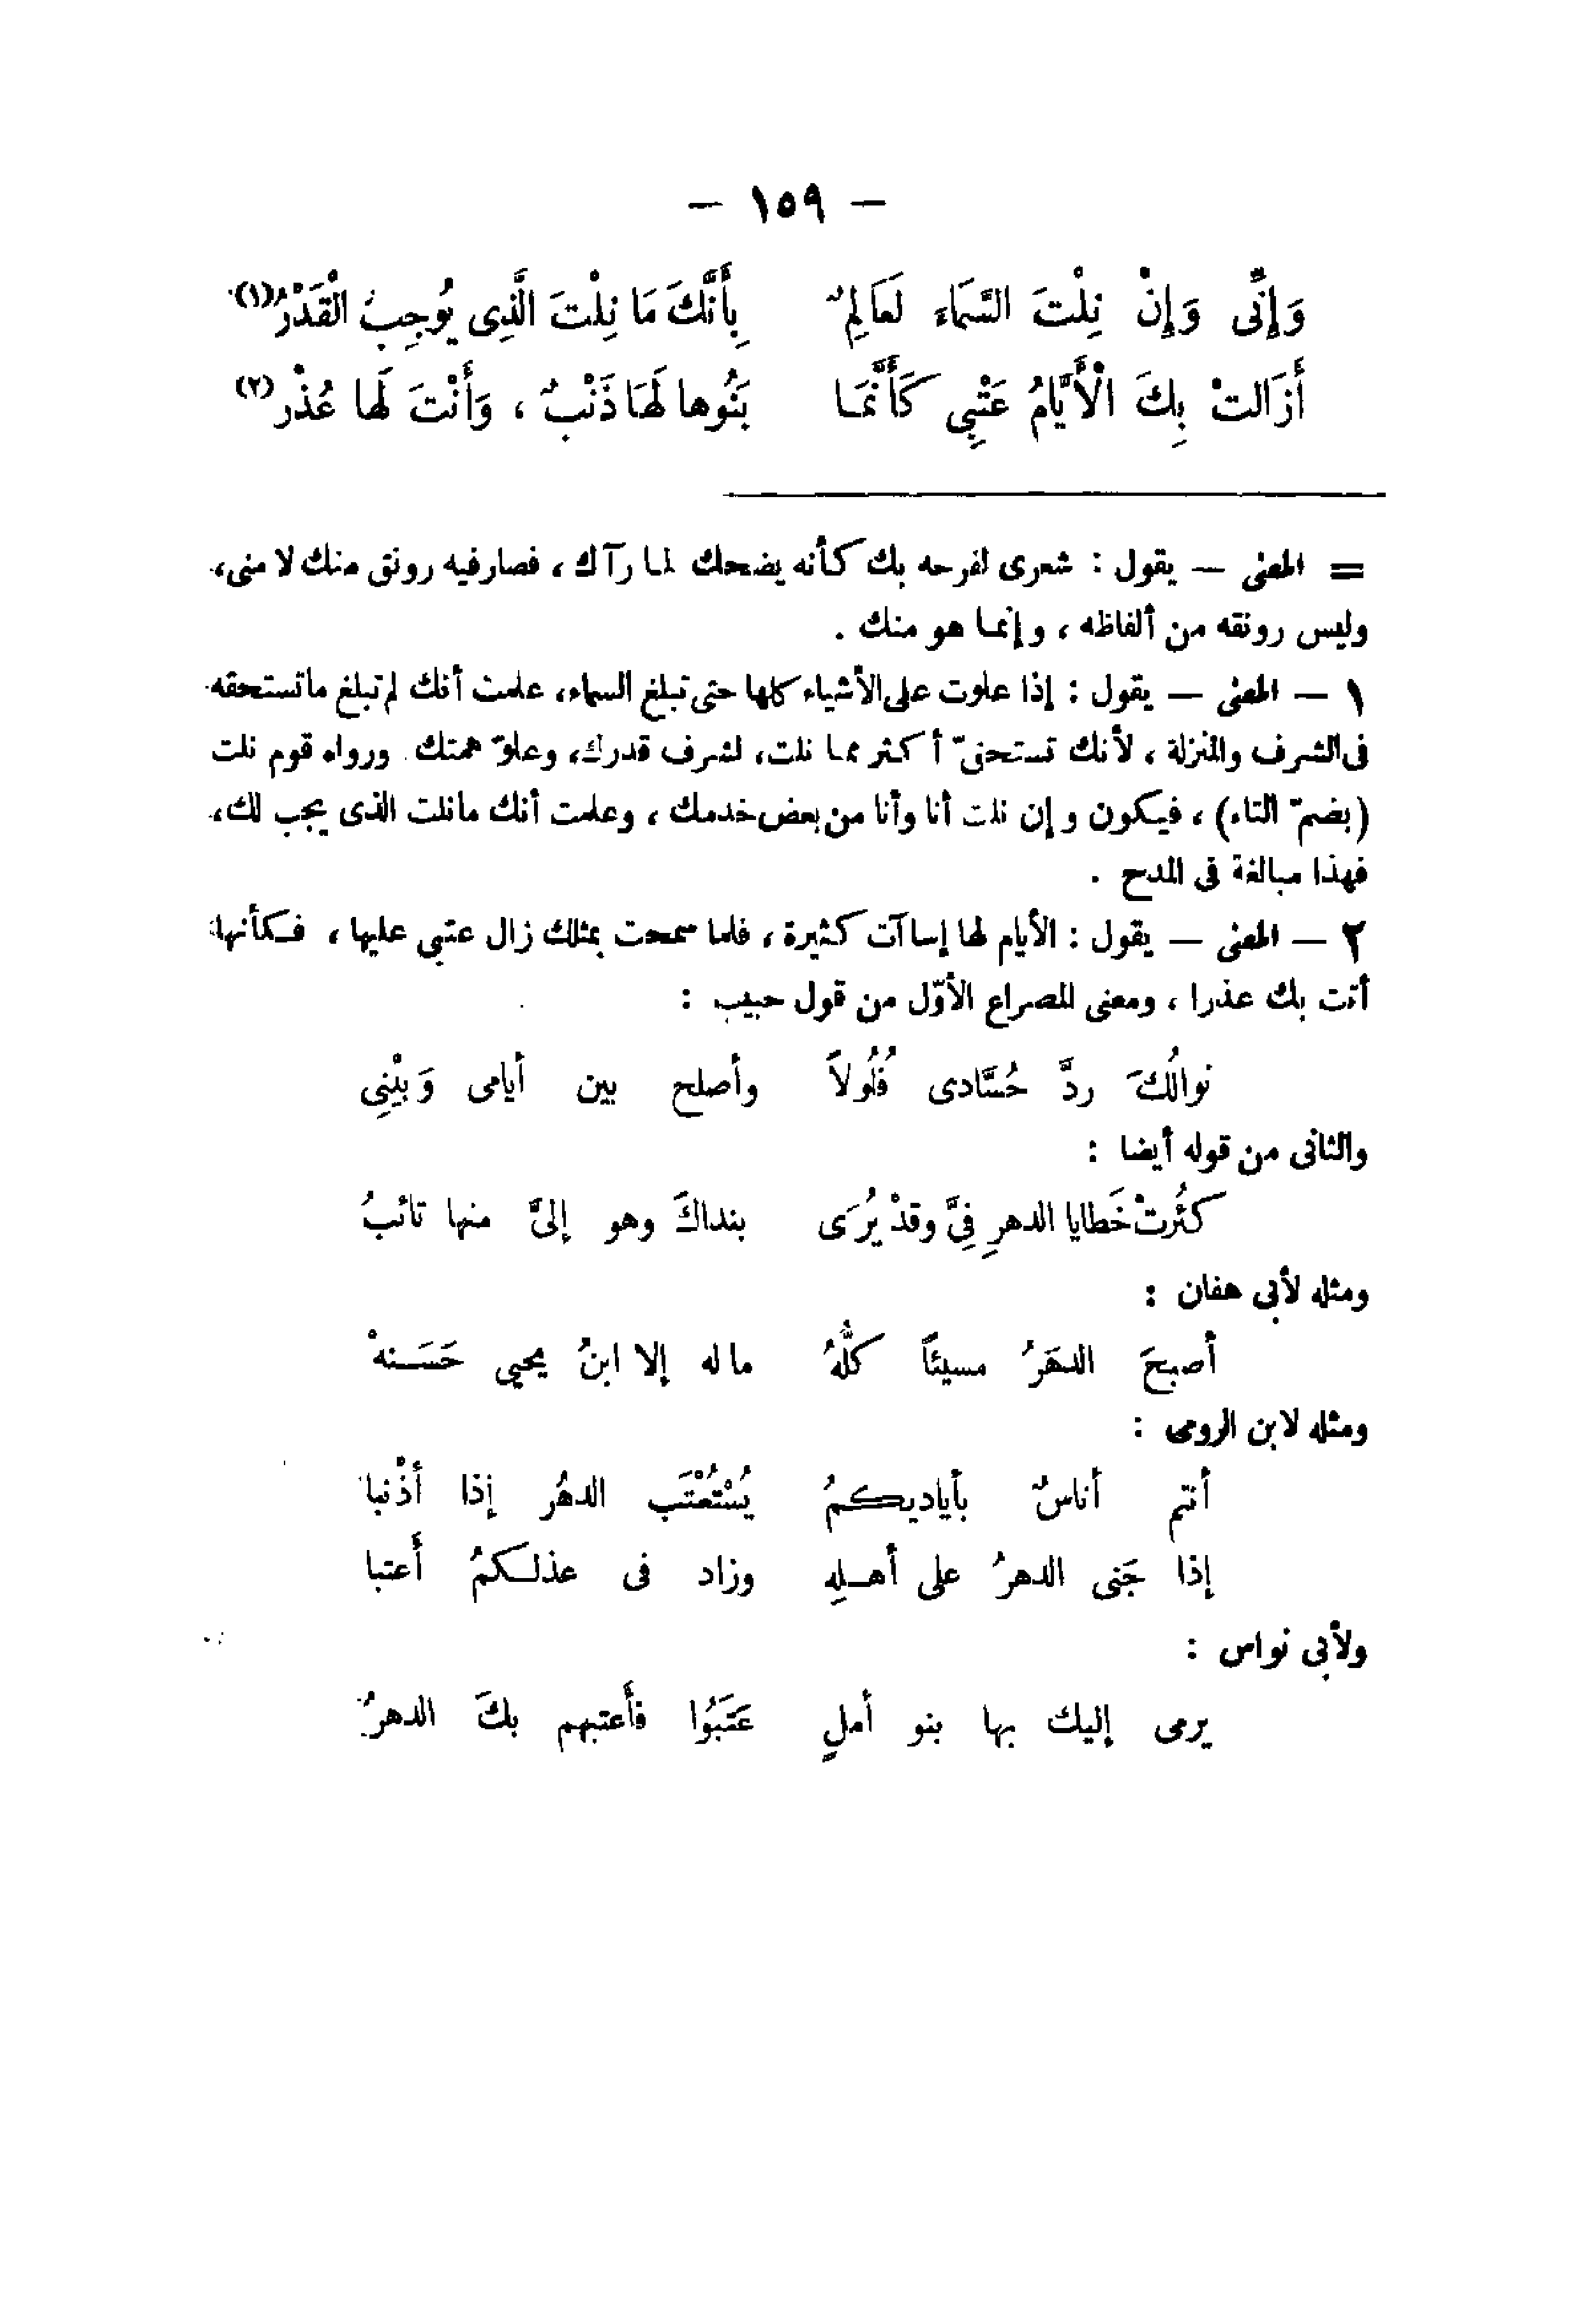 — ١٥٩ —
وَإِنِّى وَإِنْ نِلْتَ السَّمَاءَ لَعَالِمٌ بِأَنَّكَ مَا نِلْتَ الَّذِى يُوجِبُ الْقَدْرُ(١)
أَزَالَتْ بِكَ الْأَيَّامُ عَتْبِى كَأَنَّمَا بَنُوها لَهَا ذَنْبٌ ، وَأَنْتَ لَهَا عُذْرُ(٢)
= المعنى — يقول : شعرى لفرحه بك كأنه يضحك لما رآك ، فصار فيه رونق منك لا منى،
وليس رونقه من ألفاظه ، وإنما هو منك .
١ — المعنى — يقول : إذا علوت على الأشياء كلها حتى تبلغ السماء، علمت أنك لم تبلغ ماتستحقه
فى الشرف والمنزلة ، لأنك تستحقّ أكثر مما نلت، لشرف قدرك، وعلوّ همتك. ورواه قوم نلت
(بضمّ التاء) ، فيكون وإن نلت أنا وأنا من بعض خدمك ، وعلمت أنك مانلت الذى يجب لك،
فهذا مبالغة فى المدح .
٢ — المعنى — يقول : الأيام لها إساآت كثيرة ، فلما سمحت بمثلك زال عتبى عليها ، فكأنها
أتت بك عذرا ، ومعنى المصراع الأوّل من قول حبيب :
نوالُكَ ردَّ حُسَّادى فُلُولاً وأصلح بين أيامى وَبيْنِى
والثانى من قوله أيضا :
كثُرتْ خَطايا الدهرِ فِىَّ وقدْ يُرَى بنداكَ وهو إلىَّ منها تائبُ
ومثله لأبى هفان :
أصبحَ الدهَرُ مسيئاً كلُّهُ ماله إلا ابنُ يحيى حَسَنهْ
ومثله لابن الرومى :
أنتم أناسٌ بأياديكمُ يُسْتَعْتَب الدهُر إذا أذْنبا
إذا جَنى الدهرُ على أهلِه وزاد فى عذلكمُ أَعتبا
ولأبى نواس :
يرمى إليك بها بنو أملٍ عَتَبُوا فأَعتبهم بكَ الدهرُ